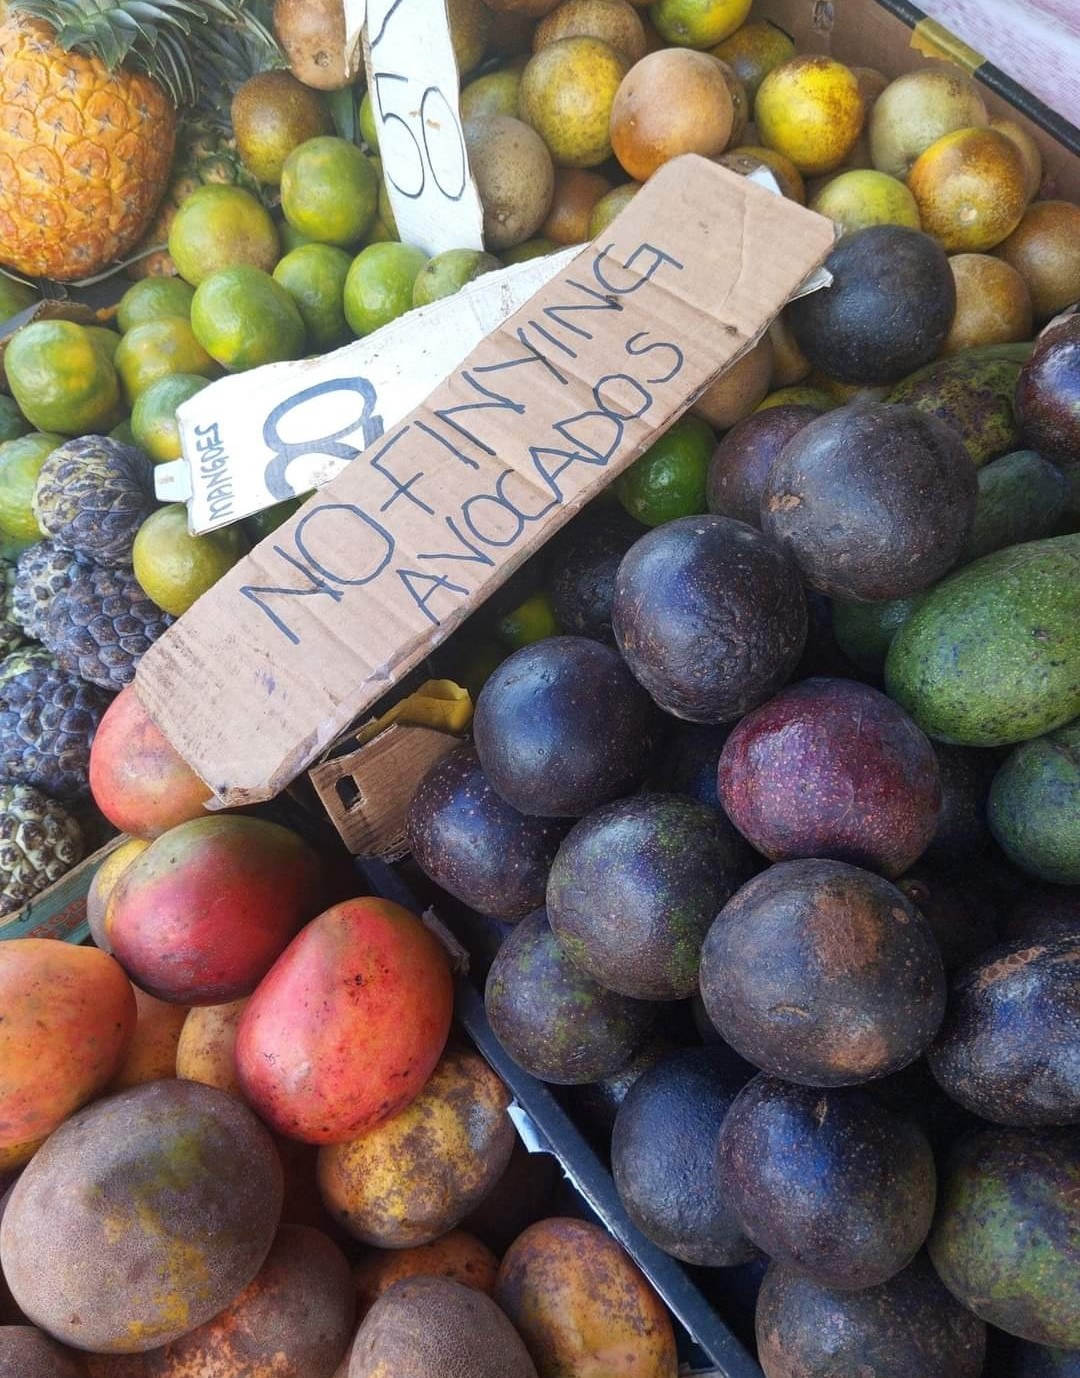 50
MANGOES
80
NO FINYING
AVOCADOS